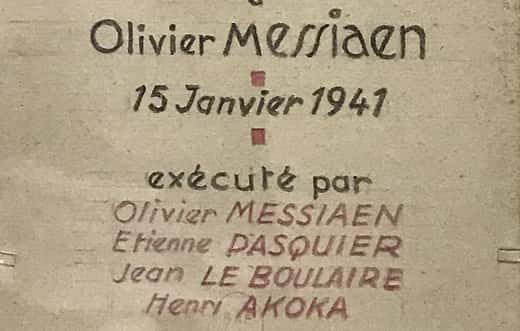 Olivier Messiaen
15 Janvier 1941
exécuté par
Olivier MESSIAEN
Etienne PASQUIER
Jean LE BOULAIRE
Henri AKOKA